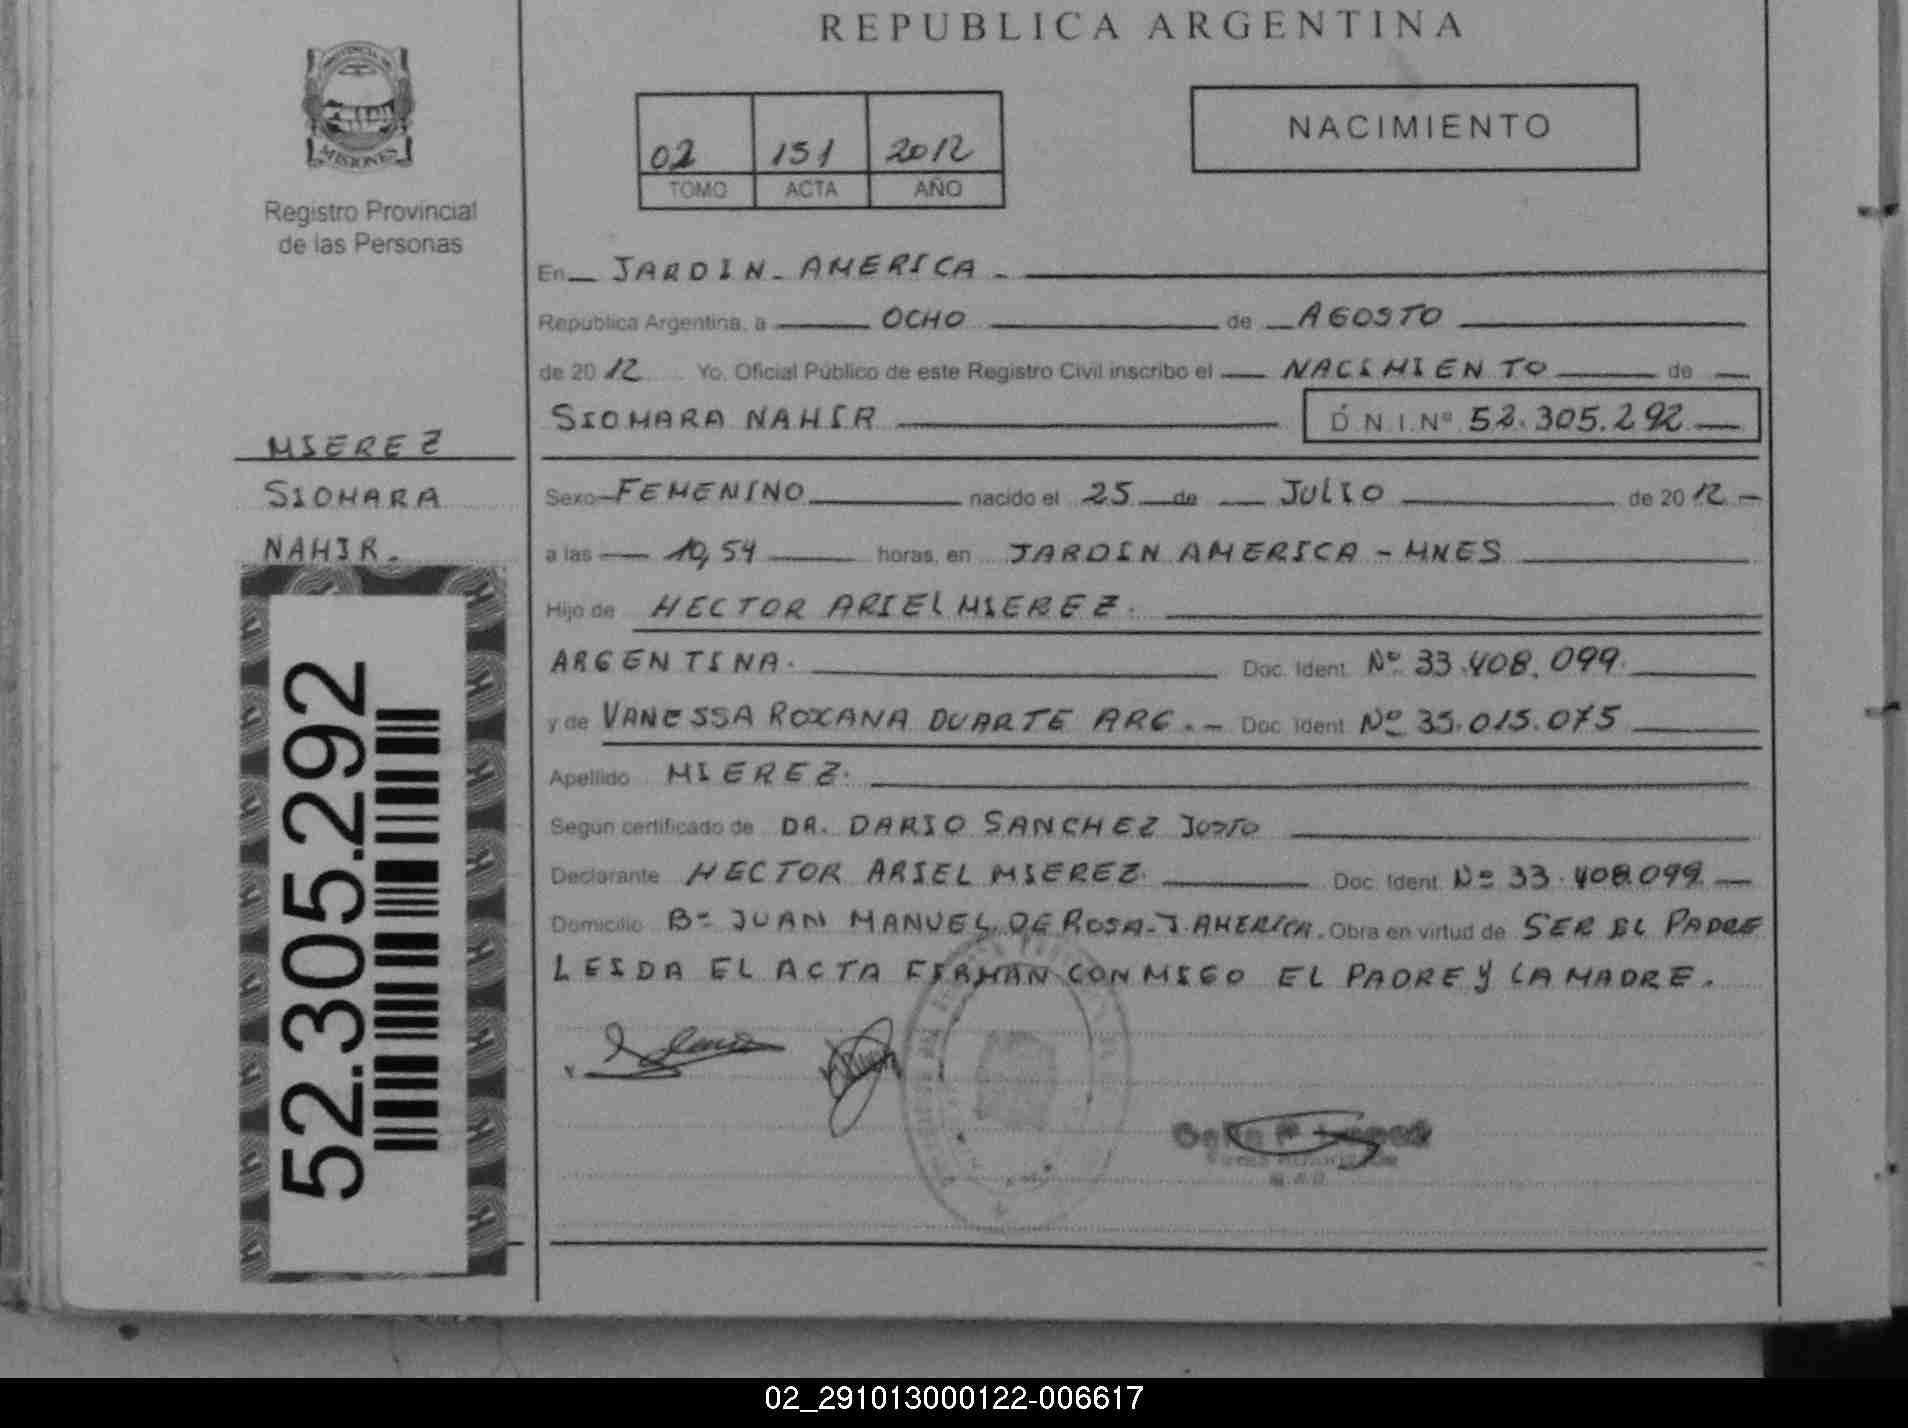 REPUBLICA ARGENTINA
PROVINCIA DE
MISIONES
Registro Provincial
de las Personas
02 151 2012
TOMO ACTA AÑO
NACIMIENTO
En JARDIN AMERICA
Republica Argentina, a OCHO de AGOSTO
de 2012 Yo, Oficial Público de este Registro Civil inscribo el NACIMIENTO de
SIOMARA NAHIR D.N.I.Nº 52.305.292
MIEREZ
SIOMARA
NAHIR.
Sexo FEMENINO nacido el 25 de JULIO de 2012
a las 10,54 horas, en JARDIN AMERICA - MNES
Hijo de HECTOR ARIEL MIEREZ.
ARGENTINA. Doc. Ident. Nº 33.408.099.
y de VANESSA ROXANA DUARTE ARG. Doc. Ident. Nº 35.015.075
Apellido MIEREZ.
Según certificado de DR. DARIO SANCHEZ JUSTO
Declarante HECTOR ARIEL MIEREZ. Doc. Ident. Nº 33.408.099.
Domicilio Bº JUAN MANUEL DE ROSA-J. AMERICA. Obra en virtud de SER EL PADRE
LEIDA EL ACTA FIRMAN CONMIGO EL PADRE Y LA MADRE.
52.305.292
02_291013000122-006617